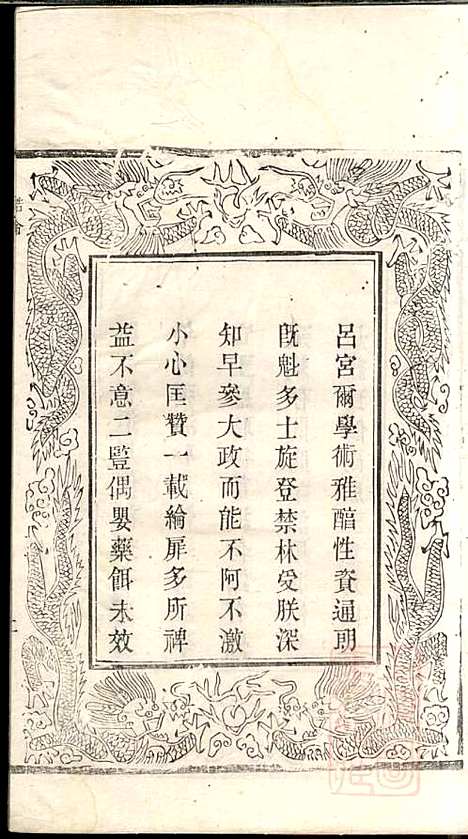 呂宮爾學術雅醕性資通明
旣魁多士旋登禁林受朕深
知早參大政而能不阿不激
小心匡贊一載綸扉多所裨
益不意二豎偶嬰藥餌未效
誥命
二